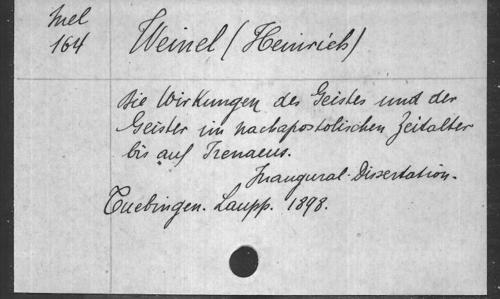 Mel
164
Weinel (Heinrich)
Die Wirkungen des Geistes und der
Geister im nachapostolischen Zeitalter
bis auf Irenaeus.
Inaugural-Dissertation.
Tuebingen. Laupp. 1898.